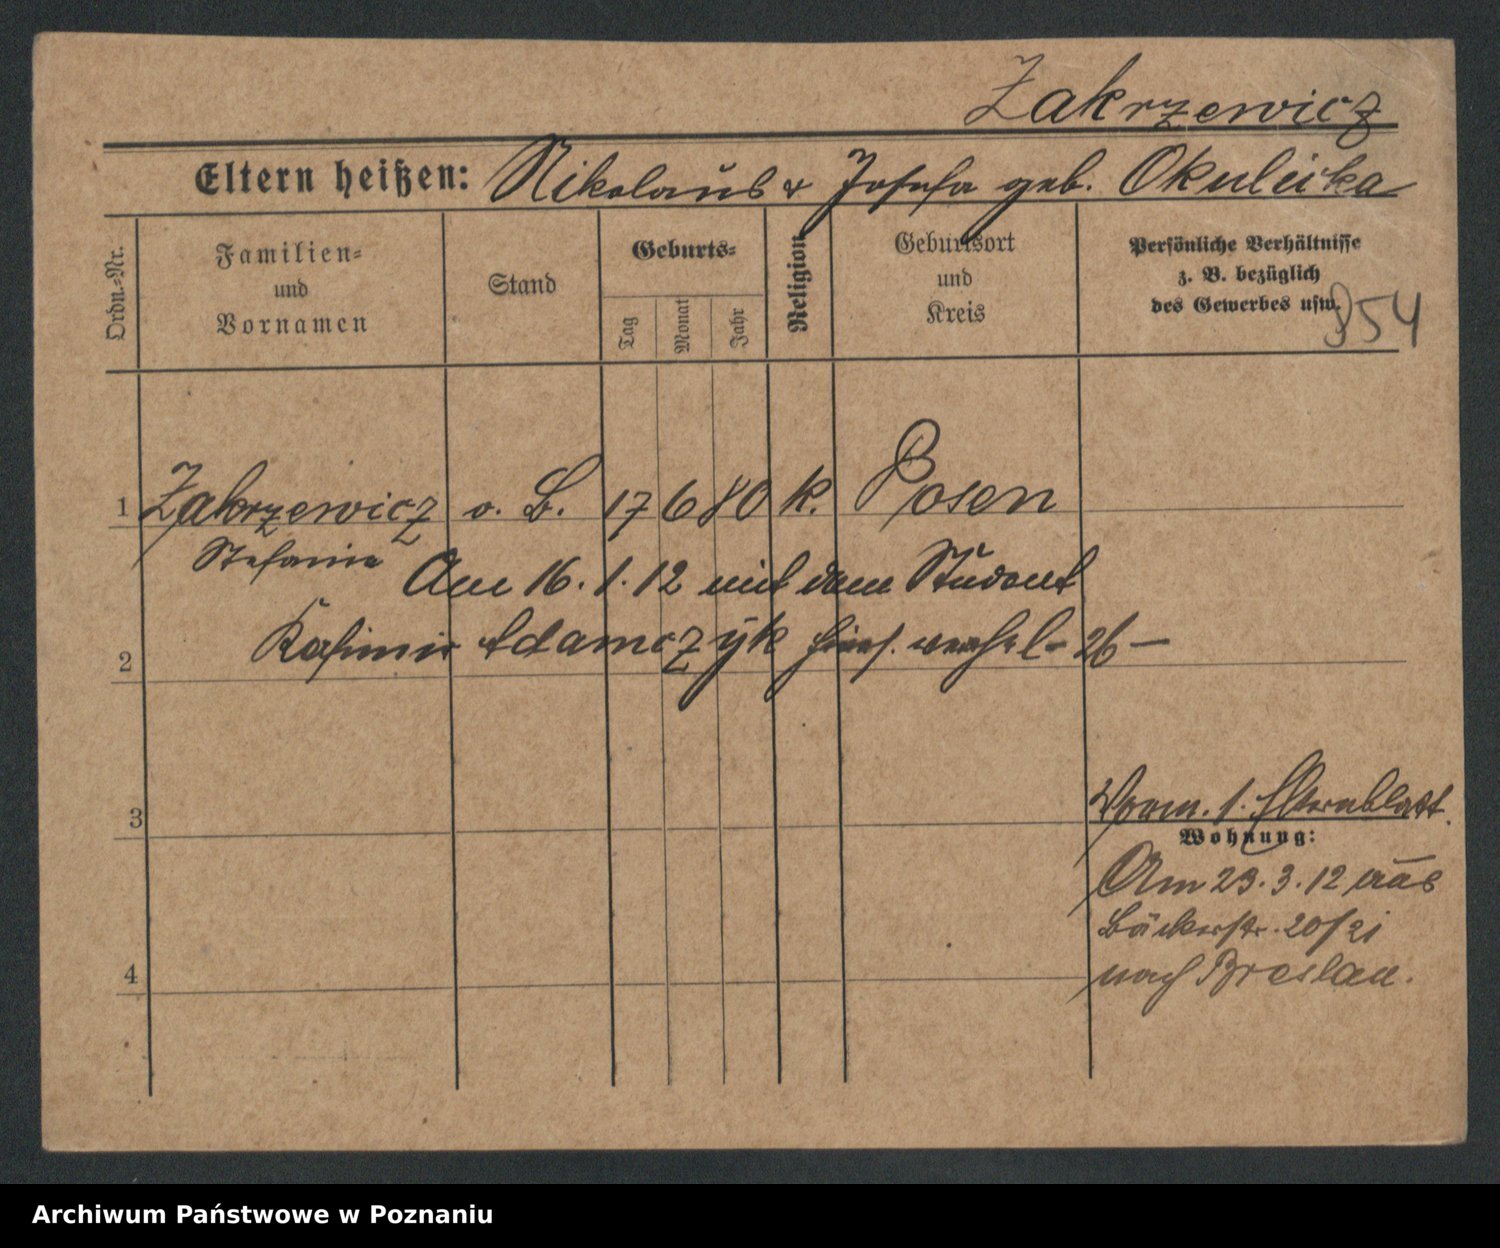 Zakrzewicz
Eltern heißen: Nikolaus & Josefa geb. Okulicka
Ordn.-Nr.
Familien- und Vornamen
Stand
Geburts-
Tag
Monat
Jahr
Religion
Geburtsort und Kreis
Persönliche Verhältnisse
z. B. bezüglich
des Gewerbes usw.
954
1 Zakrzewicz o. B. 17 6 80 k. Posen
Stefanie
Am 16.1.12 mit dem Student
2 Kasimir Adamczyk hies. verehel- 26 -
3
Vorm. s. Elternblatt.
Wohnung:
Am 23.3.12 aus
Bäckerstr. 20/21
4
nach Breslau.
Archiwum Państwowe w Poznaniu